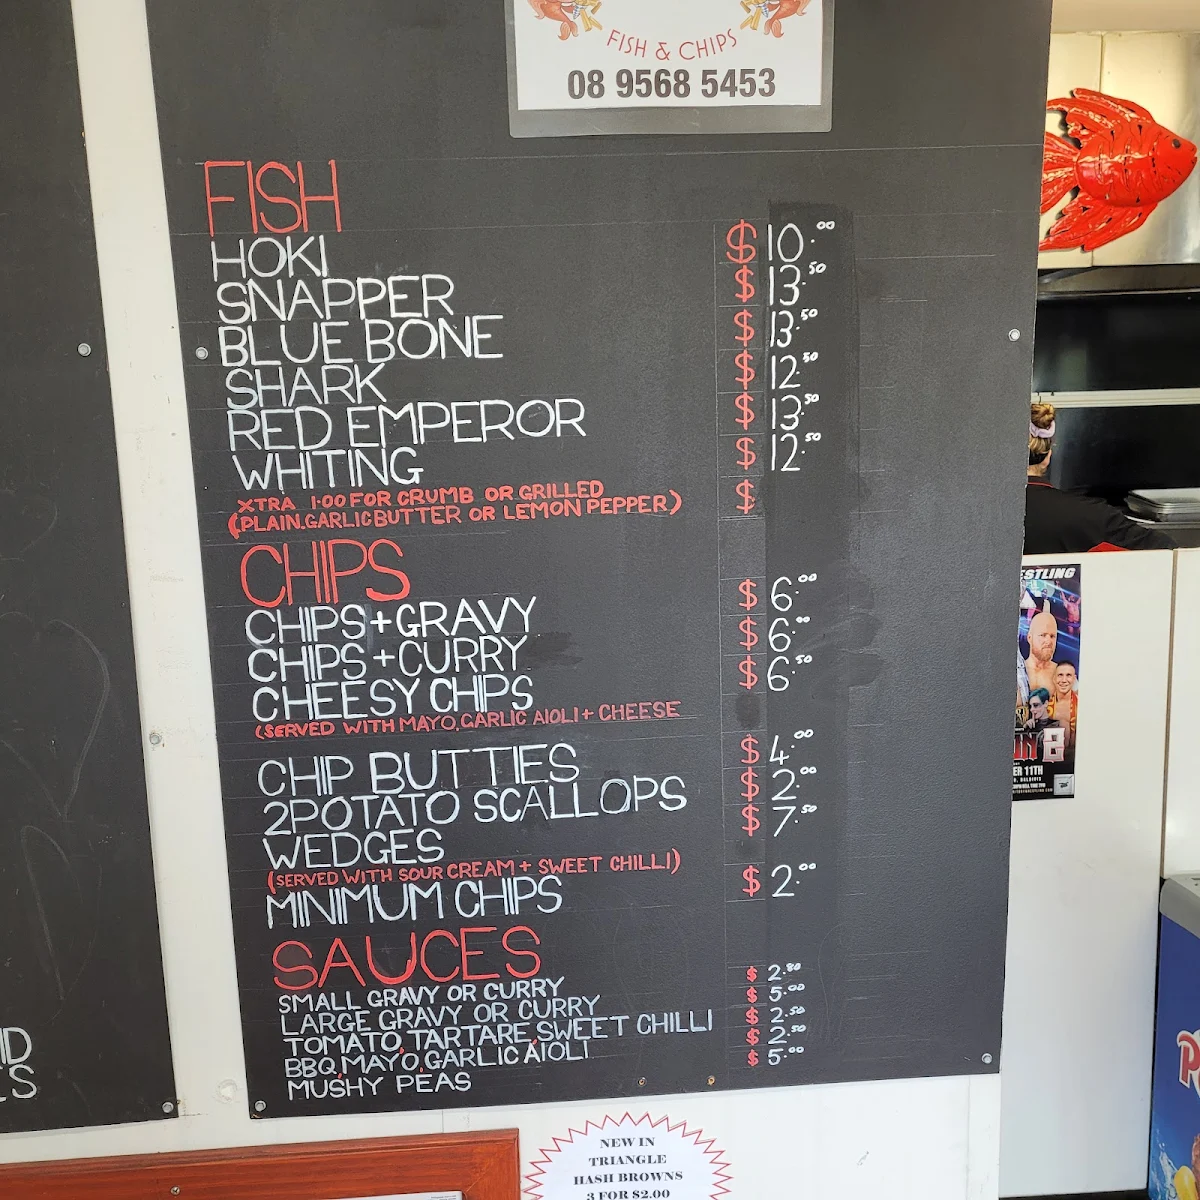 FISH & CHIPS
08 9568 5453
FISH
HOKI $10.00
SNAPPER $13.50
BLUE BONE $13.50
SHARK $12.50
RED EMPEROR $13.50
WHITING $12.50
XTRA 1.00 FOR CRUMB OR GRILLED $
(PLAIN.GARLIC BUTTER OR LEMON PEPPER)
CHIPS
CHIPS + GRAVY $6.00
CHIPS + CURRY $6.00
CHEESY CHIPS $6.50
(SERVED WITH MAYO, GARLIC AIOLI + CHEESE
CHIP BUTTIES $4.00
2 POTATO SCALLOPS $2.00
WEDGES $7.50
(SERVED WITH SOUR CREAM + SWEET CHILLI)
MINIMUM CHIPS $2.00
SAUCES
SMALL GRAVY OR CURRY $2.80
LARGE GRAVY OR CURRY $5.00
TOMATO, TARTARE, SWEET CHILLI $2.50
BBQ, MAYO, GARLIC AIOLI $2.50
MUSHY PEAS $5.00
NEW IN
TRIANGLE
HASH BROWNS
3 FOR $2.00
ESTLING
ER 11TH